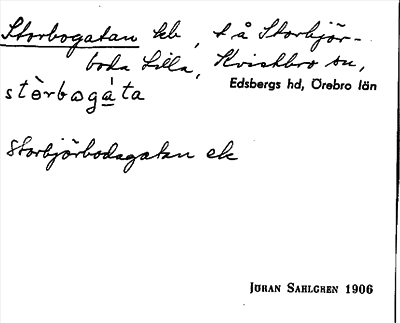 Storbogatan hb, t å Storbjör-
boda Lilla, Kvistbro sn,
Edsbergs hd, Örebro län
stòrbogá̱ta
Storbjörbodagatan ek
JÖRAN SAHLGREN 1906